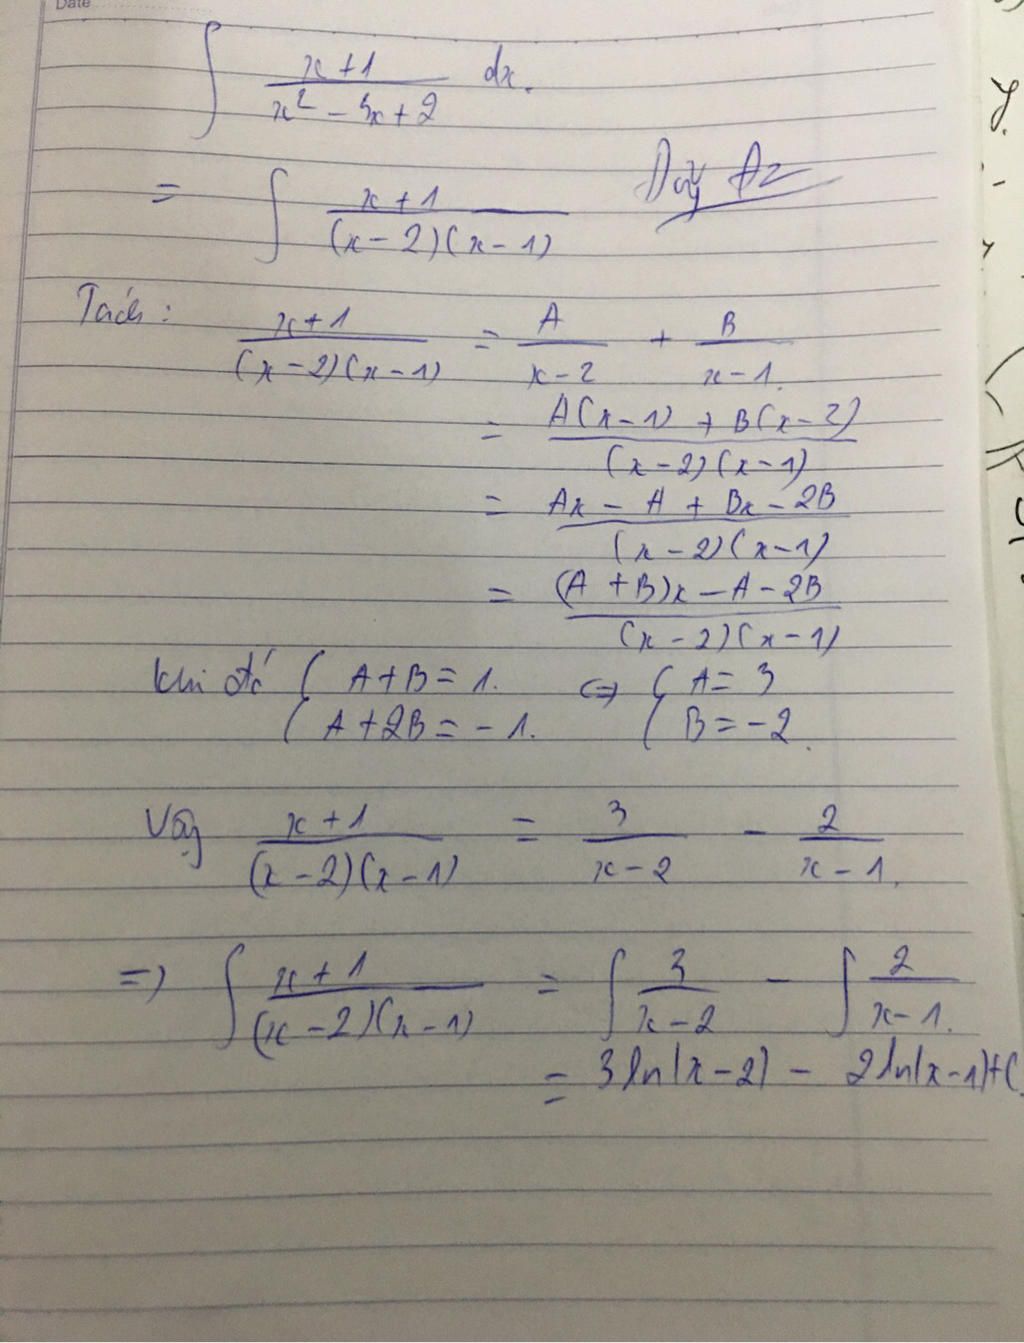 Date
∫ (x+1)/(x² - 3x + 2) dx.
= ∫ (x+1)/((x-2)(x-1))
Tách: (x+1)/((x-2)(x-1)) = A/(x-2) + B/(x-1).
= (A(x-1) + B(x-2))/((x-2)(x-1))
= (Ax - A + Bx - 2B)/((x-2)(x-1))
= ((A+B)x - A - 2B)/((x-2)(x-1))
khi đó { A+B = 1. ⇔ { A = 3
{ A+2B = -1. { B = -2.
Vậy (x+1)/((x-2)(x-1)) = 3/(x-2) - 2/(x-1).
=> ∫ (x+1)/((x-2)(x-1)) = ∫ 3/(x-2) - ∫ 2/(x-1).
= 3ln|x-2| - 2ln|x-1|+C.